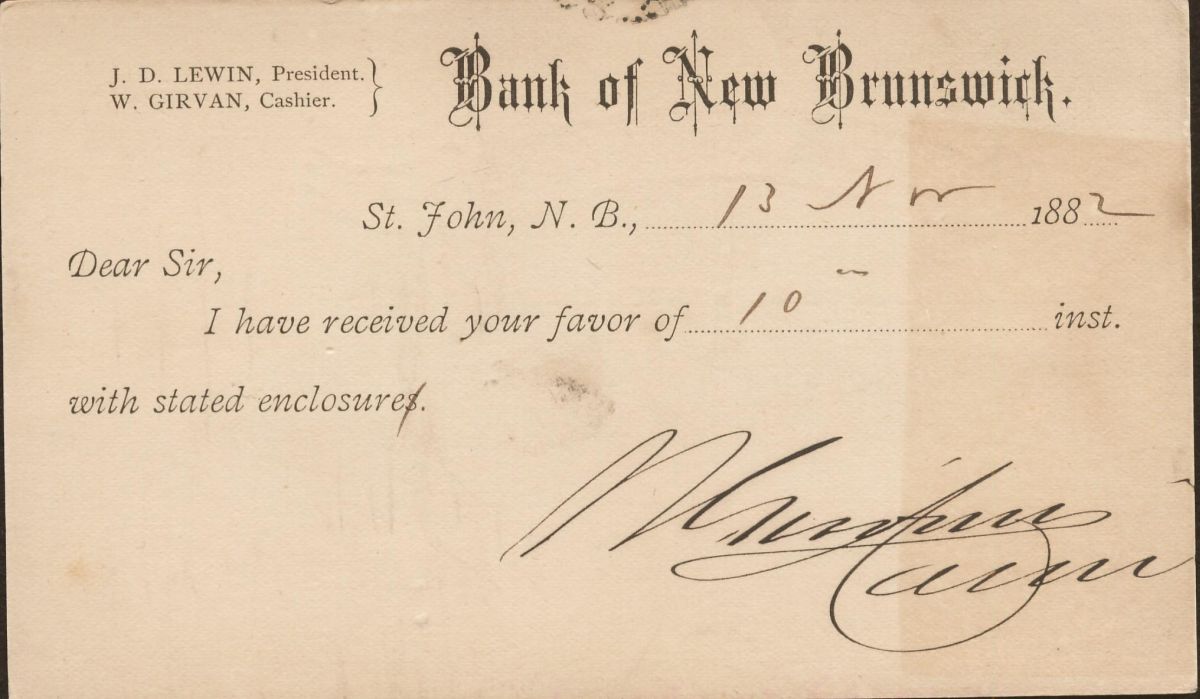 J. D. LEWIN, President.
W. GIRVAN, Cashier.
Bank of New Brunswick.
St. John, N. B., 13 Nov 1882
Dear Sir,
I have received your favor of 10 inst.
with stated enclosures.